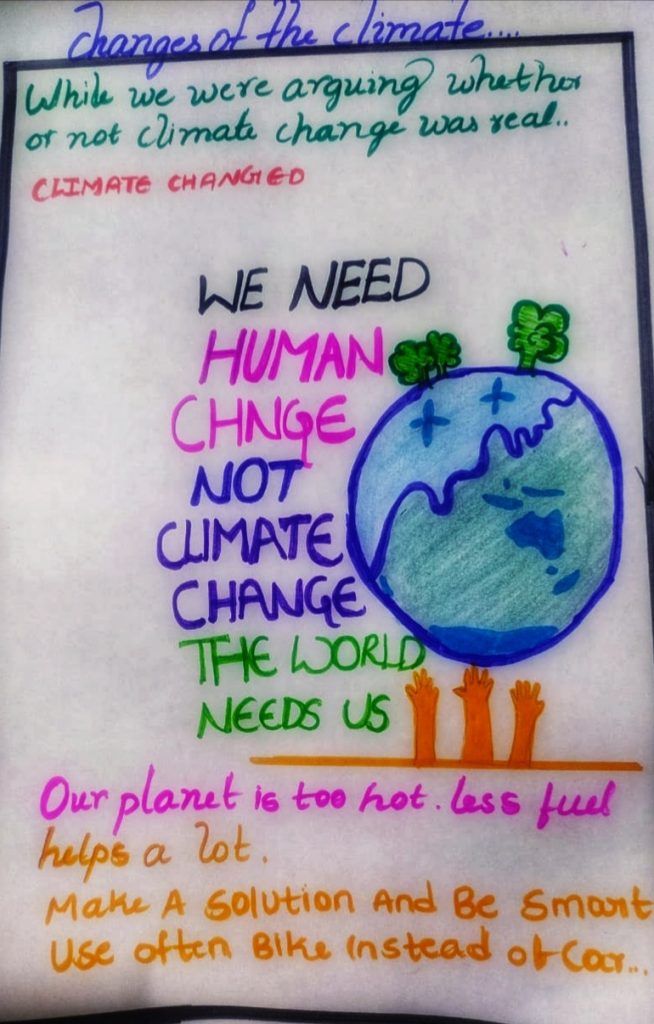 Changes of the climate....
While we were arguing whether
or not climate change was real..
CLIMATE CHANGED
WE NEED
HUMAN
CHNGE
NOT
CLIMATE
CHANGE
THE WORLD
NEEDS US
Our planet is too hot. less fuel
helps a lot.
Make A Solution And Be Smart
Use often Bike Instead of Car...